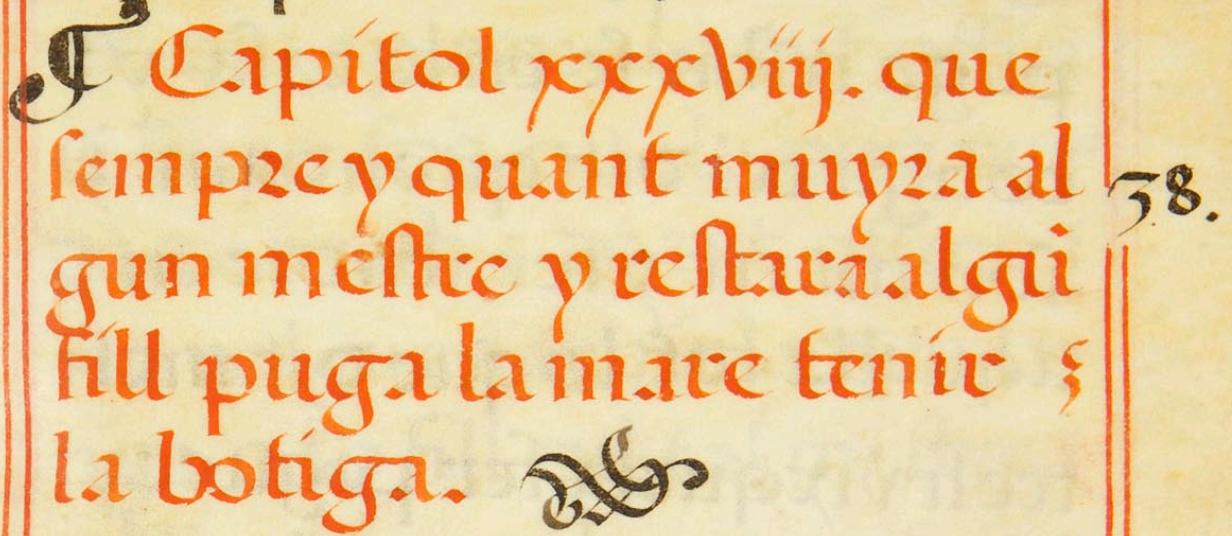 ¶ Capitol xxxviij. que
sempre y quant muyra al
gun mestre y restara algū
fill puga la mare tenir
la botiga.
38.